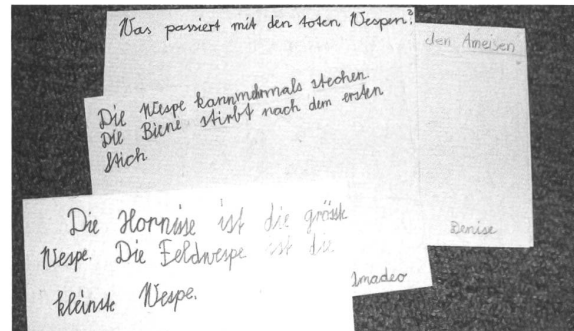 Was passiert mit den toten Wespen?
den Ameisen
Die Wespe kann mehrmals stechen
Die Biene stirbt nach dem ersten
Stich
Denise
Die Hornisse ist die grösste
Wespe. Die Feldwespe ist die
kleinste Wespe.
Amadeo